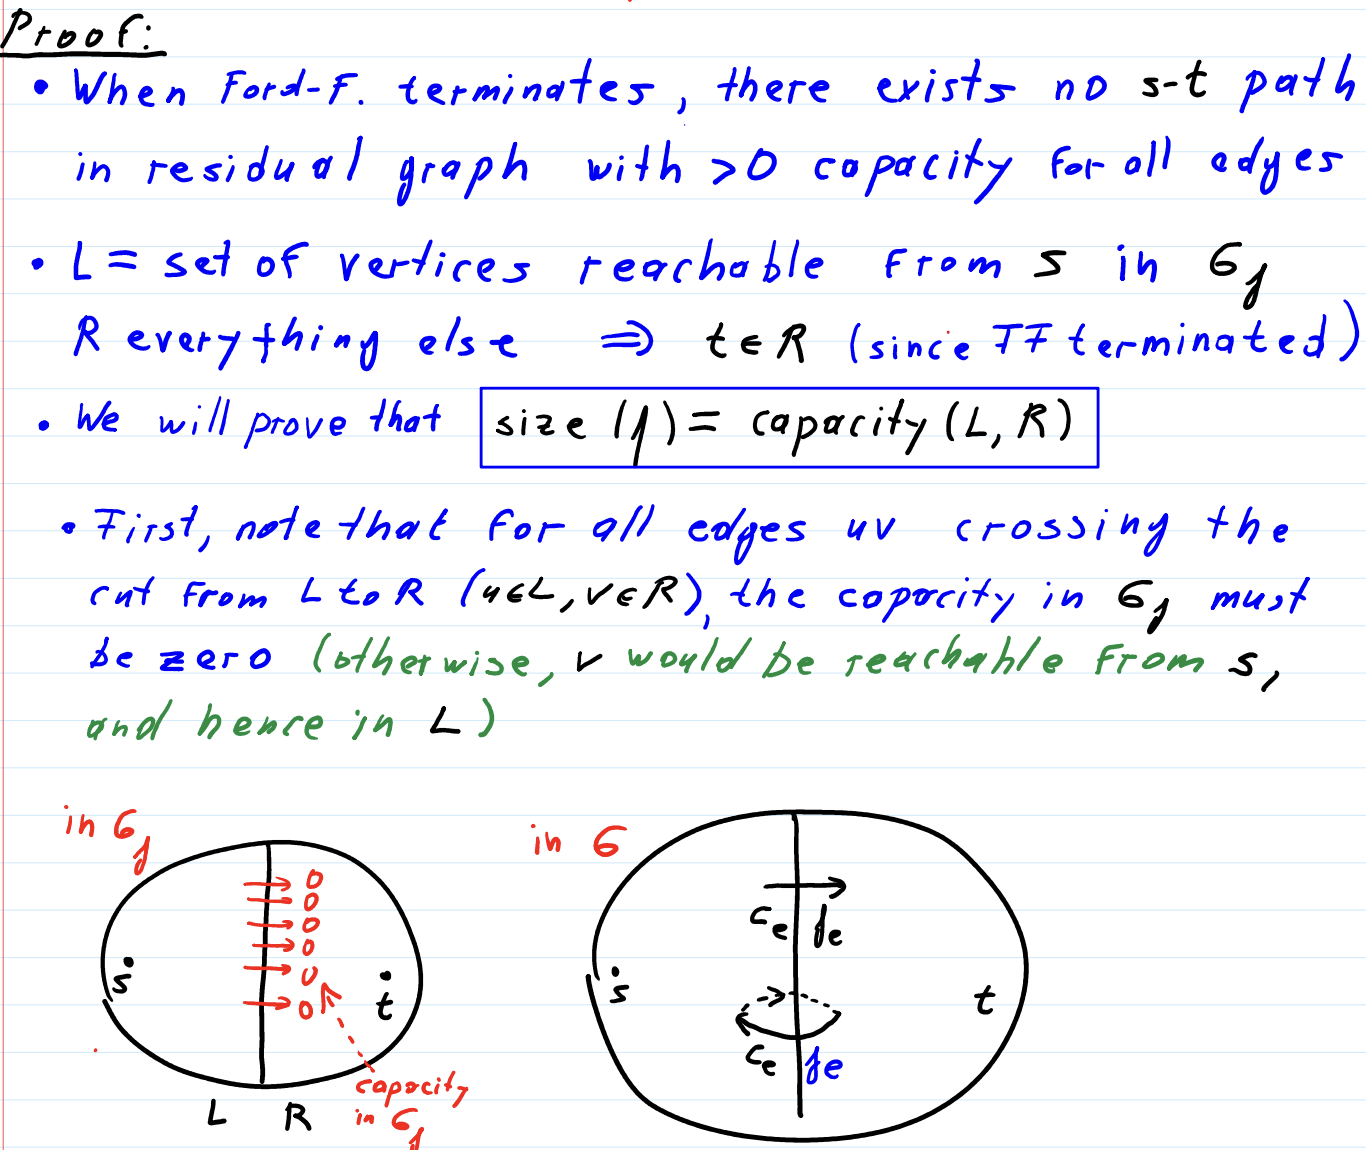 Proof:
• When Ford-F. terminates, there exists no s-t path
in residual graph with >0 capacity for all edges
• L = set of vertices reachable from s in G_f
R everything else ⇒ t ∈ R (since FF terminated)
• We will prove that size (f) = capacity (L, R)
• First, note that for all edges uv crossing the
cut from L to R (u∈L, v∈R), the capacity in G_f must
be zero (otherwise, v would be reachable from s,
and hence in L)
in G_f
0
0
0
0
0
0
s
t
capacity
in G_f
L R
in G
c_e f_e
s
t
c_e f_e